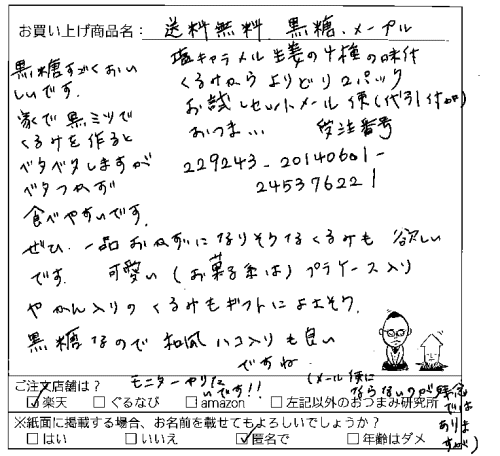 お買い上げ商品名: 送料無料 黒糖、メープル
塩キャラメル 生姜の4種の味付
くるみから よりどり2パック
お試しセットメール便(代引付不可)
おつま… 受注番号
229243-20140601-
245376221
黒糖すごくおい
しいです。
家で黒ミツで
くるみを作ると
ベタベタしますが
ベタつかず
食べやすいです。
ぜひ、一品おかずになりそうなくるみも 欲しい
です。 可愛い(お菓子系は)プラケース入り
やかん入りの くるみもギフトによさそう。
黒糖なので 和風ハコ入りも良い
ですね
モニターやりたいです!!
(メール便にならないのが残念ではありますが)
ご注文店舗は?
☑楽天 □ぐるなび □amazon □左記以外のおつまみ研究所
※紙面に掲載する場合、お名前を載せてもよろしいでしょうか?
□はい □いいえ ☑匿名で □年齢はダメ